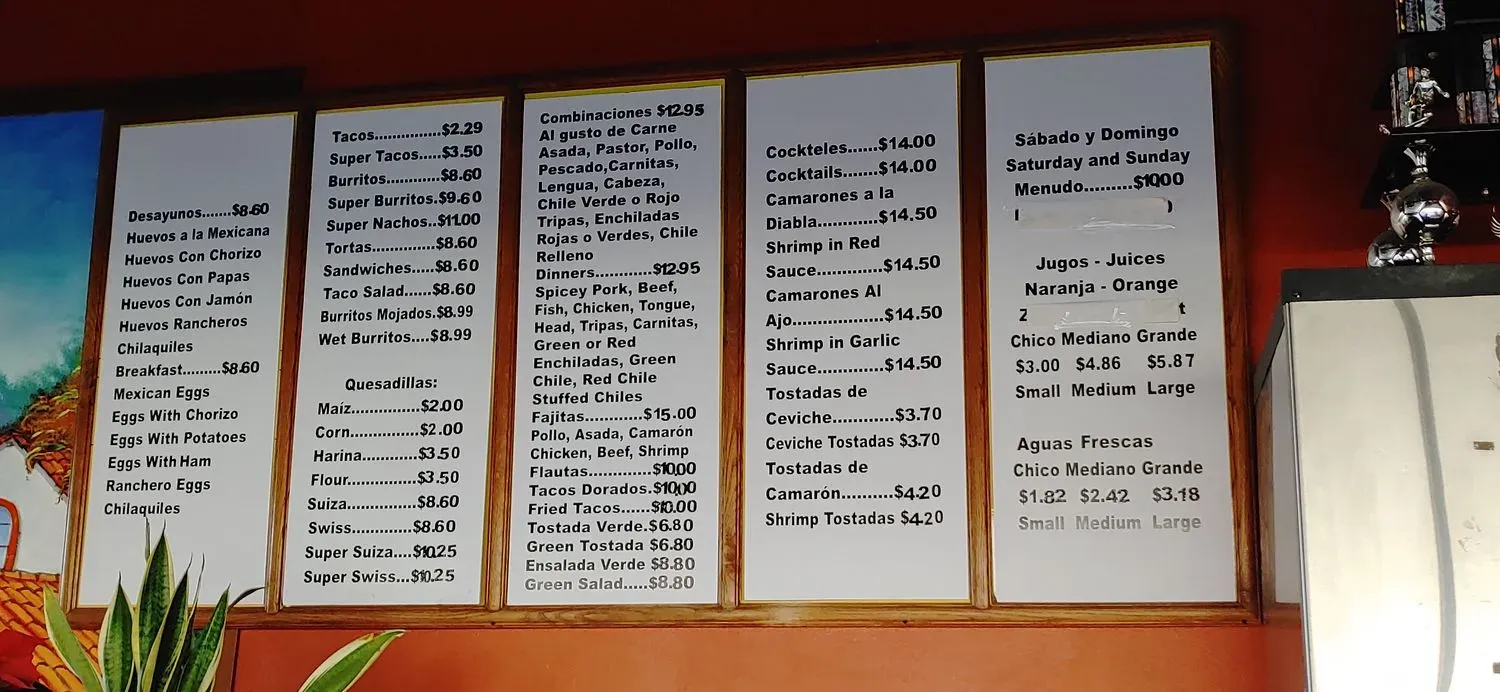 Desayunos.......$8.60
Huevos a la Mexicana
Huevos Con Chorizo
Huevos Con Papas
Huevos Con Jamón
Huevos Rancheros
Chilaquiles
Breakfast.........$8.60
Mexican Eggs
Eggs With Chorizo
Eggs With Potatoes
Eggs With Ham
Ranchero Eggs
Chilaquiles
Tacos...............$2.29
Super Tacos.....$3.50
Burritos............$8.60
Super Burritos.$9.60
Super Nachos..$11.00
Tortas..............$8.60
Sandwiches.....$8.60
Taco Salad......$8.60
Burritos Mojados.$8.99
Wet Burritos....$8.99
Quesadillas:
Maíz...............$2.00
Corn...............$2.00
Harina............$3.50
Flour..............$3.50
Suiza..............$8.60
Swiss.............$8.60
Super Suiza....$10.25
Super Swiss...$10.25
Combinaciones $12.95
Al gusto de Carne
Asada, Pastor, Pollo,
Pescado,Carnitas,
Lengua, Cabeza,
Chile Verde o Rojo
Tripas, Enchiladas
Rojas o Verdes, Chile
Relleno
Dinners............$12.95
Spicey Pork, Beef,
Fish, Chicken, Tongue,
Head, Tripas, Carnitas,
Green or Red
Enchiladas, Green
Chile, Red Chile
Stuffed Chiles
Fajitas............$15.00
Pollo, Asada, Camarón
Chicken, Beef, Shrimp
Flautas............$10.00
Tacos Dorados.$10.00
Fried Tacos......$10.00
Tostada Verde.$6.80
Green Tostada $6.80
Ensalada Verde $8.80
Green Salad.....$8.80
Cockteles......$14.00
Cocktails......$14.00
Camarones a la
Diabla............$14.50
Shrimp in Red
Sauce.............$14.50
Camarones Al
Ajo..................$14.50
Shrimp in Garlic
Sauce.............$14.50
Tostadas de
Ceviche............$3.70
Ceviche Tostadas $3.70
Tostadas de
Camarón..........$4.20
Shrimp Tostadas $4.20
Sábado y Domingo
Saturday and Sunday
Menudo.........$10.00
Jugos - Juices
Naranja - Orange
Z t
Chico Mediano Grande
$3.00 $4.86 $5.87
Small Medium Large
Aguas Frescas
Chico Mediano Grande
$1.82 $2.42 $3.18
Small Medium Large